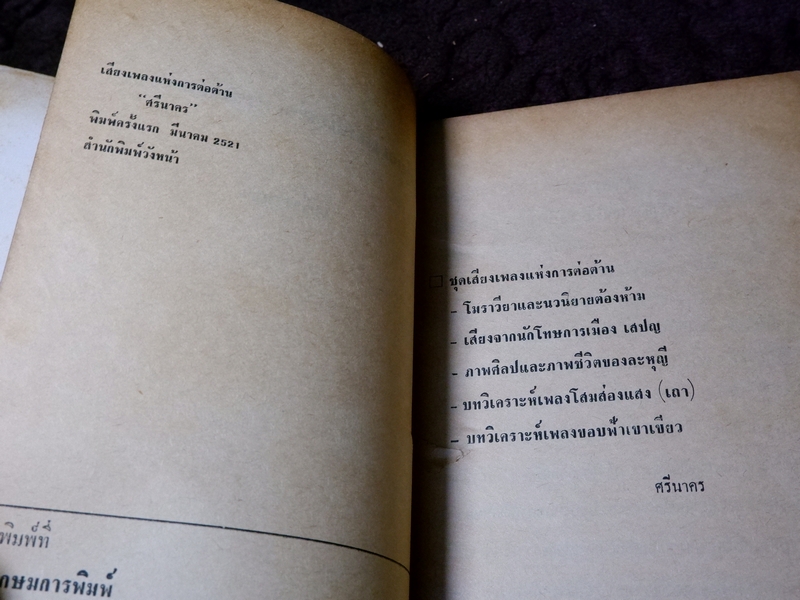 เสียงเพลงแห่งการต่อต้าน
"ศรีนาคร"
พิมพ์ครั้งแรก มีนาคม 2521
สำนักพิมพ์วังหน้า
พิมพ์ที่
กษมการพิมพ์
ชุดเสียงเพลงแห่งการต่อต้าน
- โมราวียาและนวนิยายต้องห้าม
- เสียงจากนักโทษการเมือง เสปญ
- ภาพศิลปและภาพชีวิตของละหุญี
- บทวิเคราะห์เพลงโสมส่องแสง (เถา)
- บทวิเคราะห์เพลงขอบฟ้าเขาเขียว
ศรีนาคร